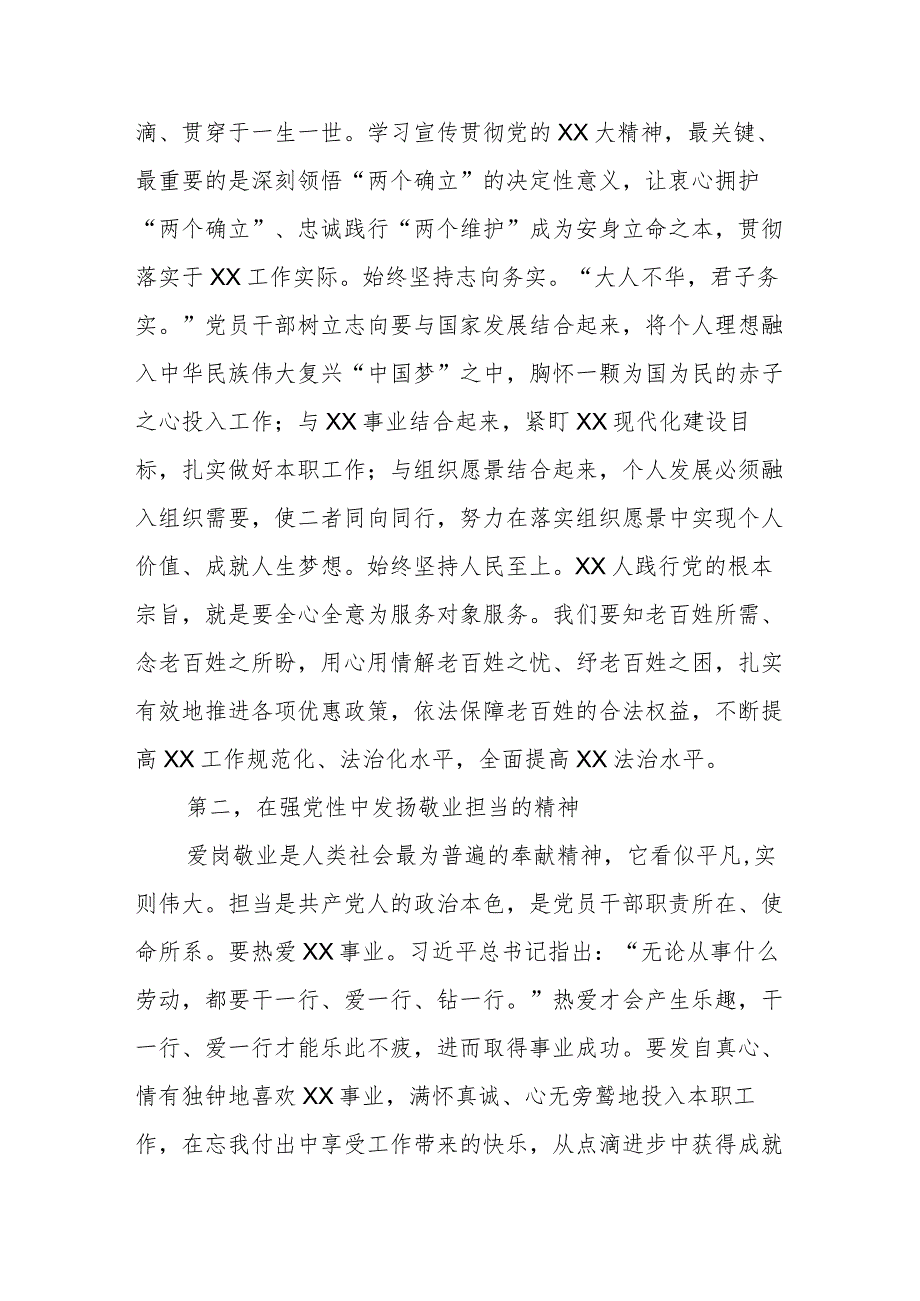 滴、贯穿于一生一世。学习宣传贯彻党的XX大精神，最关键、
最重要的是深刻领悟“两个确立”的决定性意义，让衷心拥护
“两个确立”、忠诚践行“两个维护”成为安身立命之本，贯彻
落实于XX工作实际。始终坚持志向务实。“大人不华，君子务
实。”党员干部树立志向要与国家发展结合起来，将个人理想融
入中华民族伟大复兴“中国梦”之中，胸怀一颗为国为民的赤子
之心投入工作；与XX事业结合起来，紧盯XX现代化建设目
标，扎实做好本职工作；与组织愿景结合起来，个人发展必须融
入组织需要，使二者同向同行，努力在落实组织愿景中实现个人
价值、成就人生梦想。始终坚持人民至上。XX人践行党的根本
宗旨，就是要全心全意为服务对象服务。我们要知老百姓所需、
念老百姓之所盼，用心用情解老百姓之忧、纾老百姓之困，扎实
有效地推进各项优惠政策，依法保障老百姓的合法权益，不断提
高XX工作规范化、法治化水平，全面提高XX法治水平。
第二，在强党性中发扬敬业担当的精神
爱岗敬业是人类社会最为普遍的奉献精神，它看似平凡,实
则伟大。担当是共产党人的政治本色，是党员干部职责所在、使
命所系。要热爱XX事业。习近平总书记指出：“无论从事什么
劳动，都要干一行、爱一行、钻一行。”热爱才会产生乐趣，干
一行、爱一行才能乐此不疲，进而取得事业成功。要发自真心、
情有独钟地喜欢XX事业，满怀真诚、心无旁鹜地投入本职工
作，在忘我付出中享受工作带来的快乐，从点滴进步中获得成就